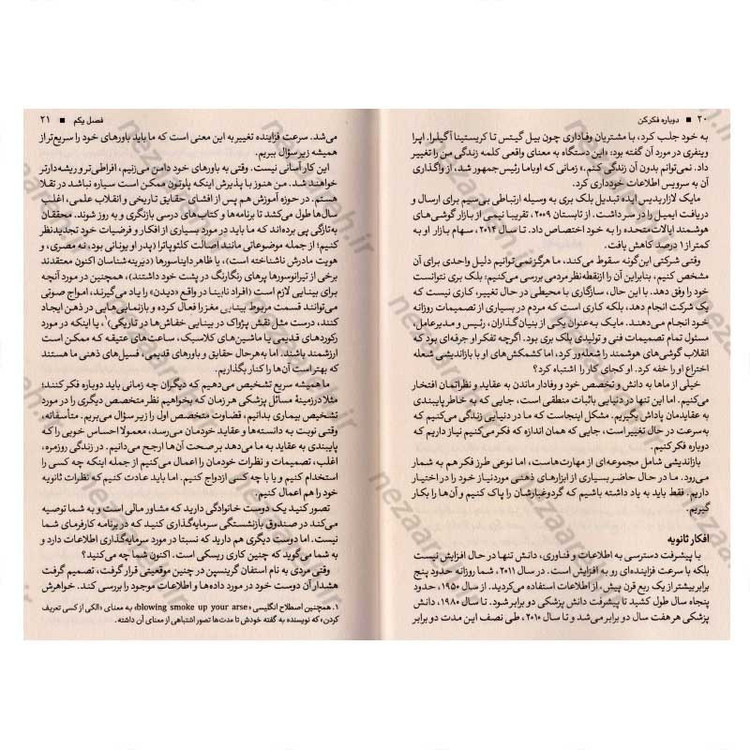 ۲۰ ■ دوباره فکر کن
به خود جلب کرد، با مشتریان وفاداری چون بیل گیتس تا کریستینا آگیلرا. اپرا
وینفری در مورد آن گفته بود: «این دستگاه به معنای واقعی کلمه زندگی من را تغییر
داد. نمی‌توانم بدون آن زندگی کنم.» زمانی که اوباما رئیس‌جمهور شد، از واگذاری
آن به سرویس اطلاعات خودداری کرد.
مایک لازاریدیس ایده تبدیل بلک بری به وسیله ارتباطی بی‌سیم برای ارسال و
دریافت ایمیل را در سر داشت. از تابستان ۲۰۰۹، تقریبا نیمی از بازار گوشی‌های
هوشمند ایالات‌متحده را به خود اختصاص داد. تا سال ۲۰۱۴، سهام بازار او به
کمتر از ۱ درصد کاهش یافت.
وقتی شرکتی این‌گونه سقوط می‌کند، ما هرگز نمی‌توانیم دلیل واحدی برای آن
مشخص کنیم، بنابراین آن را از نقطه‌نظر مردمی بررسی می‌کنیم: بلک بری نتوانست
خود را وفق دهد. با این حال، سازگاری با محیطی در حال تغییر، کاری نیست که
یک شرکت انجام دهد، بلکه کاری است که مردم در بسیاری از تصمیمات روزانه
خود انجام می‌دهند. مایک به‌عنوان یکی از بنیان‌گذاران، رئیس و مدیرعامل،
مسئول تمام تصمیمات فنی و تولیدی بلک بری بود. اگرچه تفکر او جرقه‌ای بود که
انقلاب گوشی‌های هوشمند را شعله‌ور کرد، اما کشمکش‌های او با بازاندیشی شعله
اختراع او را خفه کرد. او کجای کار را اشتباه کرد؟
خیلی از ماها به دانش و تخصص خود و وفادار ماندن به عقاید و نظراتمان افتخار
می‌کنیم. اما این تنها در دنیایی باثبات منطقی است، جایی که به خاطر پایبندی
به عقایدمان پاداش بگیریم. مشکل اینجاست که ما در دنیایی زندگی می‌کنیم که
به‌سرعت در حال تغییر است، جایی که همان اندازه که فکر می‌کنیم نیاز داریم که
دوباره فکر کنیم.
بازاندیشی شامل مجموعه‌ای از مهارت‌هاست، اما نوعی طرز فکر هم به شمار
می‌رود. ما در حال حاضر بسیاری از ابزارهای ذهنی موردنیاز خود را در اختیار
داریم. فقط باید به یاد داشته باشیم که گردوغبارشان را پاک کنیم و آن‌ها را بکار
گیریم.
افکار ثانویه
با پیشرفت دسترسی به اطلاعات و فناوری، دانش تنها در حال افزایش نیست
بلکه با سرعت فزاینده‌ای رو به افزایش است. در سال ۲۰۱۱، شما روزانه حدود پنج
برابر بیشتر از یک ربع قرن پیش، از اطلاعات استفاده می‌کردید. از سال ۱۹۵۰، حدود
پنجاه سال طول کشید تا پیشرفت دانش پزشکی دو برابر شود. تا سال ۱۹۸۰، دانش
پزشکی هر هفت سال دو برابر می‌شد و تا سال ۲۰۱۰، طی نصف این مدت دو برابر
فصل یکم ■ ۲۱
می‌شد. سرعت فزاینده تغییر به این معنی است که ما باید باورهای خود را سریع‌تر از
همیشه زیر سؤال ببریم.
این کار آسانی نیست. وقتی به باورهای خود دامن می‌زنیم، افراطی‌تر و ریشه‌دارتر
خواهند شد. من هنوز با پذیرش اینکه پلوتون ممکن است سیاره نباشد در تقلا
هستم. در حوزه آموزش هم پس از افشای حقایق تاریخی و انقلاب علمی، اغلب
سال‌ها طول می‌کشد تا برنامه‌ها و کتاب‌های درسی بازنگری و به روز شوند. محققان
به‌تازگی پی برده‌اند که ما باید در مورد بسیاری از افکار و فرضیات خود تجدیدنظر
کنیم؛ از جمله موضوعاتی مانند اصالت کلئوپاترا (پدر او یونانی بود، نه مصری، و
هویت مادرش ناشناخته است)، یا ظاهر دایناسورها (دیرینه‌شناسان اکنون معتقدند
برخی از تیرانوسورها پرهای رنگارنگ در پشت خود داشتند)، همچنین در مورد آنچه
برای بینایی لازم است (افراد نابینا در واقع «دیدن» را یاد می‌گیرند، امواج صوتی
می‌توانند قسمت مربوط بینایی مغز را فعال کرده و بازنمایی‌هایی در ذهن ایجاد
کنند، درست مثل نقش پژواک در بینایی خفاش‌ها در تاریکی)۱، یا اینکه در مورد
رکوردهای قدیمی یا ماشین‌های کلاسیک، ساعت‌های عتیقه که ممکن است
ارزشمند باشند. اما به‌هرحال حقایق و باورهای قدیمی، فسیل‌های ذهنی ما هستند
که بهتر است آن‌ها را کنار بگذاریم.
ما همیشه سریع تشخیص می‌دهیم که دیگران چه زمانی باید دوباره فکر کنند؛
مثلا در زمینهٔ مسائل پزشکی هر زمان که بخواهیم نظر متخصص دیگری را در مورد
تشخیص بیماری بدانیم، قضاوت متخصص اول را زیر سؤال می‌بریم. متأسفانه،
وقتی نوبت به دانسته‌ها و عقاید خودمان می‌رسد، معمولا احساس خوبی را که
پایبندی به عقاید به ما می‌دهد بر صحت آن‌ها ارجح می‌دانیم. در زندگی روزمره،
اغلب، تصمیمات و نظرات خودمان را اعمال می‌کنیم از جمله اینکه چه کسی را
استخدام کنیم و یا با چه کسی ازدواج کنیم. اما باید عادت کنیم که نظرات ثانویه
خود را هم اعمال کنیم.
تصور کنید یک دوست خانوادگی دارید که مشاور مالی است و به شما توصیه
می‌کند در صندوق بازنشستگی سرمایه‌گذاری کنید که در برنامه کارفرمای شما
نیست. اما دوست دیگری هم دارید که نسبتا در مورد سرمایه‌گذاری اطلاعات دارد و
به شما می‌گوید که چنین کاری ریسکی است. اکنون شما چه می‌کنید؟
وقتی مردی به نام استفان گرینسپن در چنین موقعیتی قرار گرفت، تصمیم گرفت
هشدار آن دوست خود در مورد داده‌ها و اطلاعات موجود را بررسی کند. خواهرش
۱. همچنین اصطلاح انگلیسی «blowing smoke up your arse» به معنای «الکی از کسی تعریف
کردن» که نویسنده به گفته خودش تا مدت‌ها تصور اشتباهی از معنای آن داشته.
nezaareh.ir